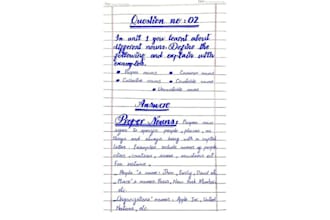 Question no: 02
In unit 1 you learnt about
different nouns. Define the
following and explain with
examples.
Proper nouns Common nouns
Collective nouns Countable nouns
Uncountable nouns
Answer
Proper Nouns: Proper nouns
refer to specific people, places, or
things and always being with a capital
letter. Examples include names of people,
cities, countries,
For instance,
People's name: John, Emily, David etc.
Place's names: Paris, New York
etc.
Organizations' names: Apple Inc, United
Nations, etc.